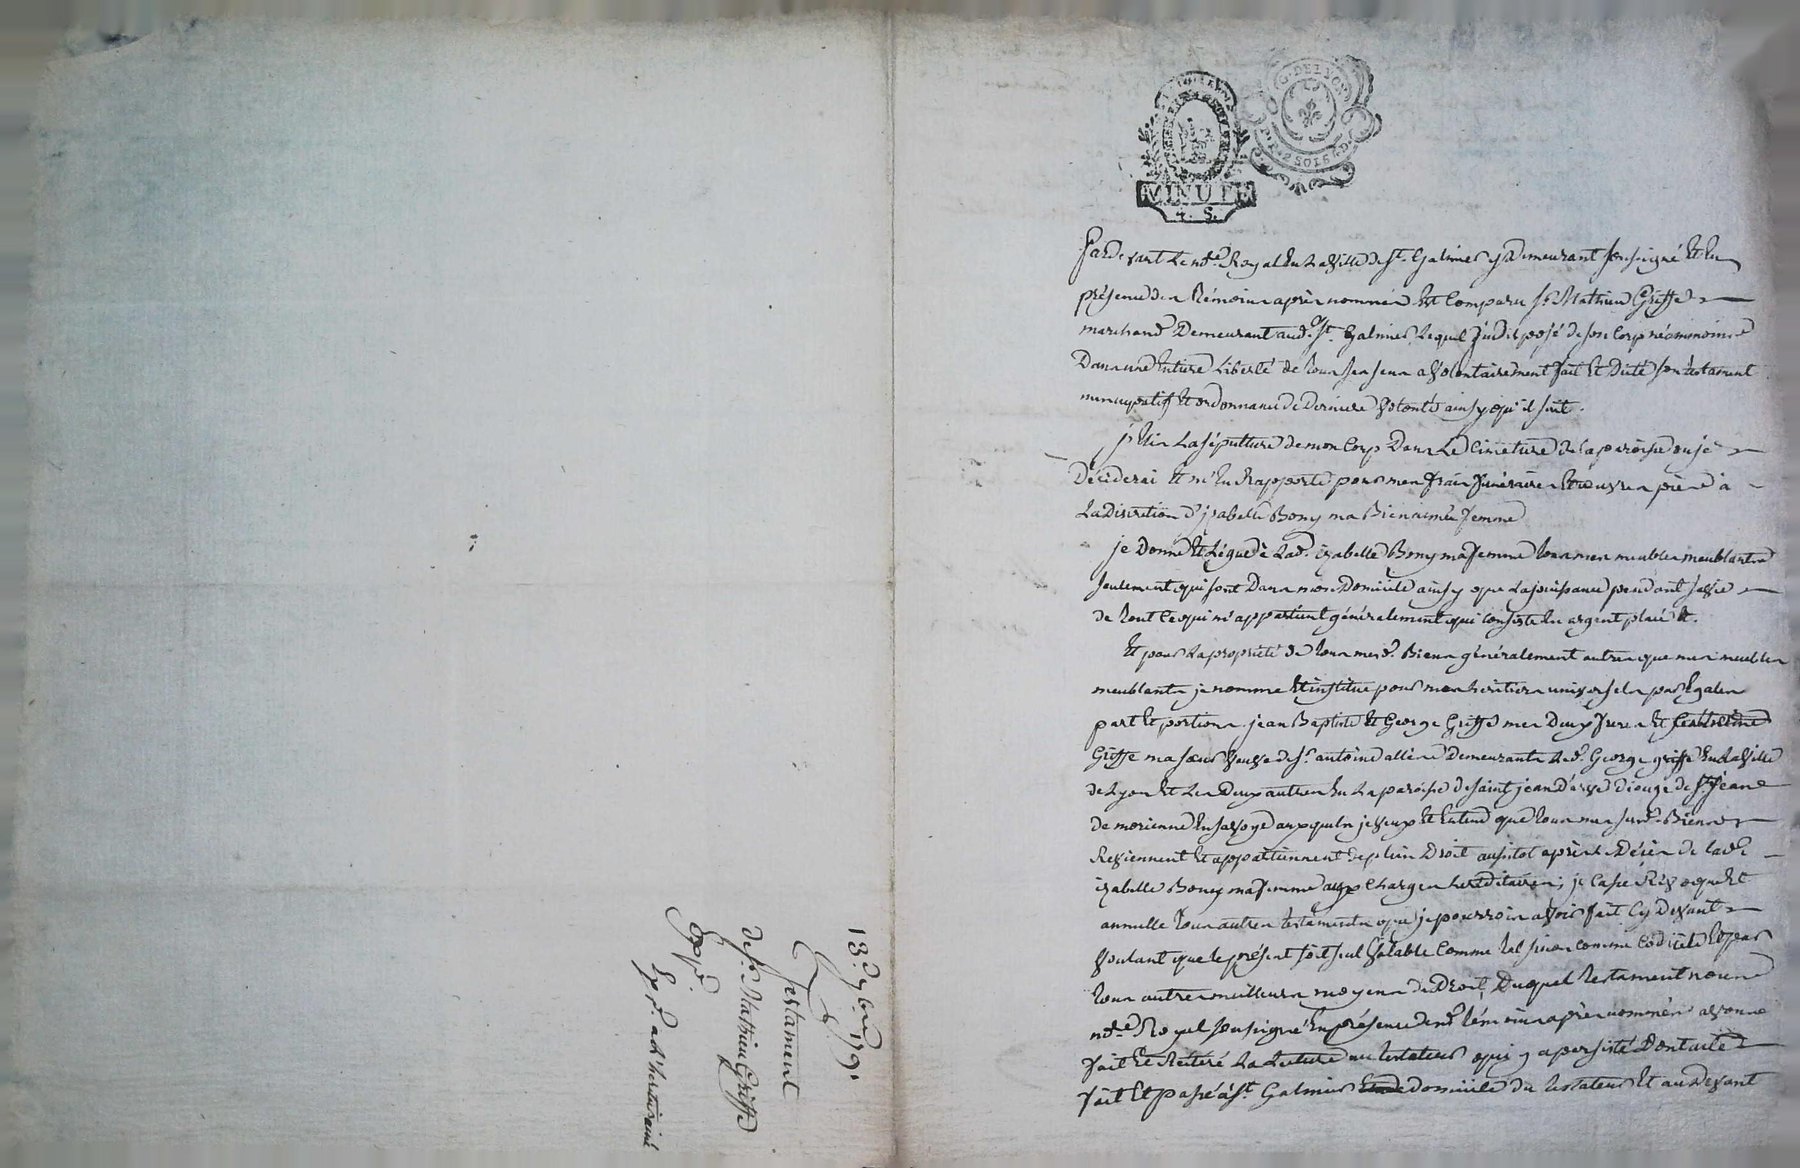 G. DE LYON
MINUTE
4. S.
Pardevant Le nore. Royal En La Ville de St. Galmier y Demeurant soussigné Et En
présence des Témoins après nommés Est Comparu sr. Mathieu Griffe
marchand Demeurant aud. St. Galmier, Lequel indisposé de son Corp néammoins
Dans une Entiere Liberté de tous ses sens a Volontairement fait Et Dicté son testament
nuncupatif Et ordonnance de Derniere Volonté ainsy qu'il suit.
j'Elis La sépulture de mon Corp Dans Le Cimetiere de la paroisse ou je
Déciderai Et m'En Rapporte pour mes frais funéraires Et œuvres pies à
La Discretion d'jsabelle Bony ma Bien aimée femme
je Donne Et Légue à Lad. izabelle Bony ma femme tous mes meubles meublants
seulement qui sont Dans mon Domicile ainsy que La jouissance pendant sa vie
de tout Ce qui m'appartient généralement qui Consiste En argent placé &.
Et pour La propriété de tous mesd. Biens généralement autres que mes meubles
meublants je nomme Et institue pour mes heritiers universels par Egales
part Et portions jean Baptiste Et George Griffe mes Deux freres Et
Griffe ma sœur Veuve de sr. antoine allere Demeurants Led. George griffe En La Ville
de Lyon Et Les Deux autres En La paroisse de saint jean D'arve Diouze de St. jean
de morienne En savoye auxquels je Veux Et Entend que tous mes susd. Biens
Reviennent Et appartiennent de plein Droit aussitot après le Décès de lade.
izabelle Bony ma femme aux Charges hereditaires; je Casse Révoque Et
annulle tous autres testaments que je pourrois avoir fait Cy Devant
Voulant que le présent soit seul Valable Comme tel sinon comme Codicile Et par
tous autres meilleurs moyens de Droit, Duquel testament nous
nore. Royal soussigné En présence desd. témoins après nommés avons
fait Et Réiteré La Lecture au testateur qui y a persisté Dont acte
fait Et passé à St. Galmier domicile du testateur Et au Devant
13. 7bre. 179.
Testament
de sr. Mathieu Griffe
Exp.
Exp. a d'heritaire